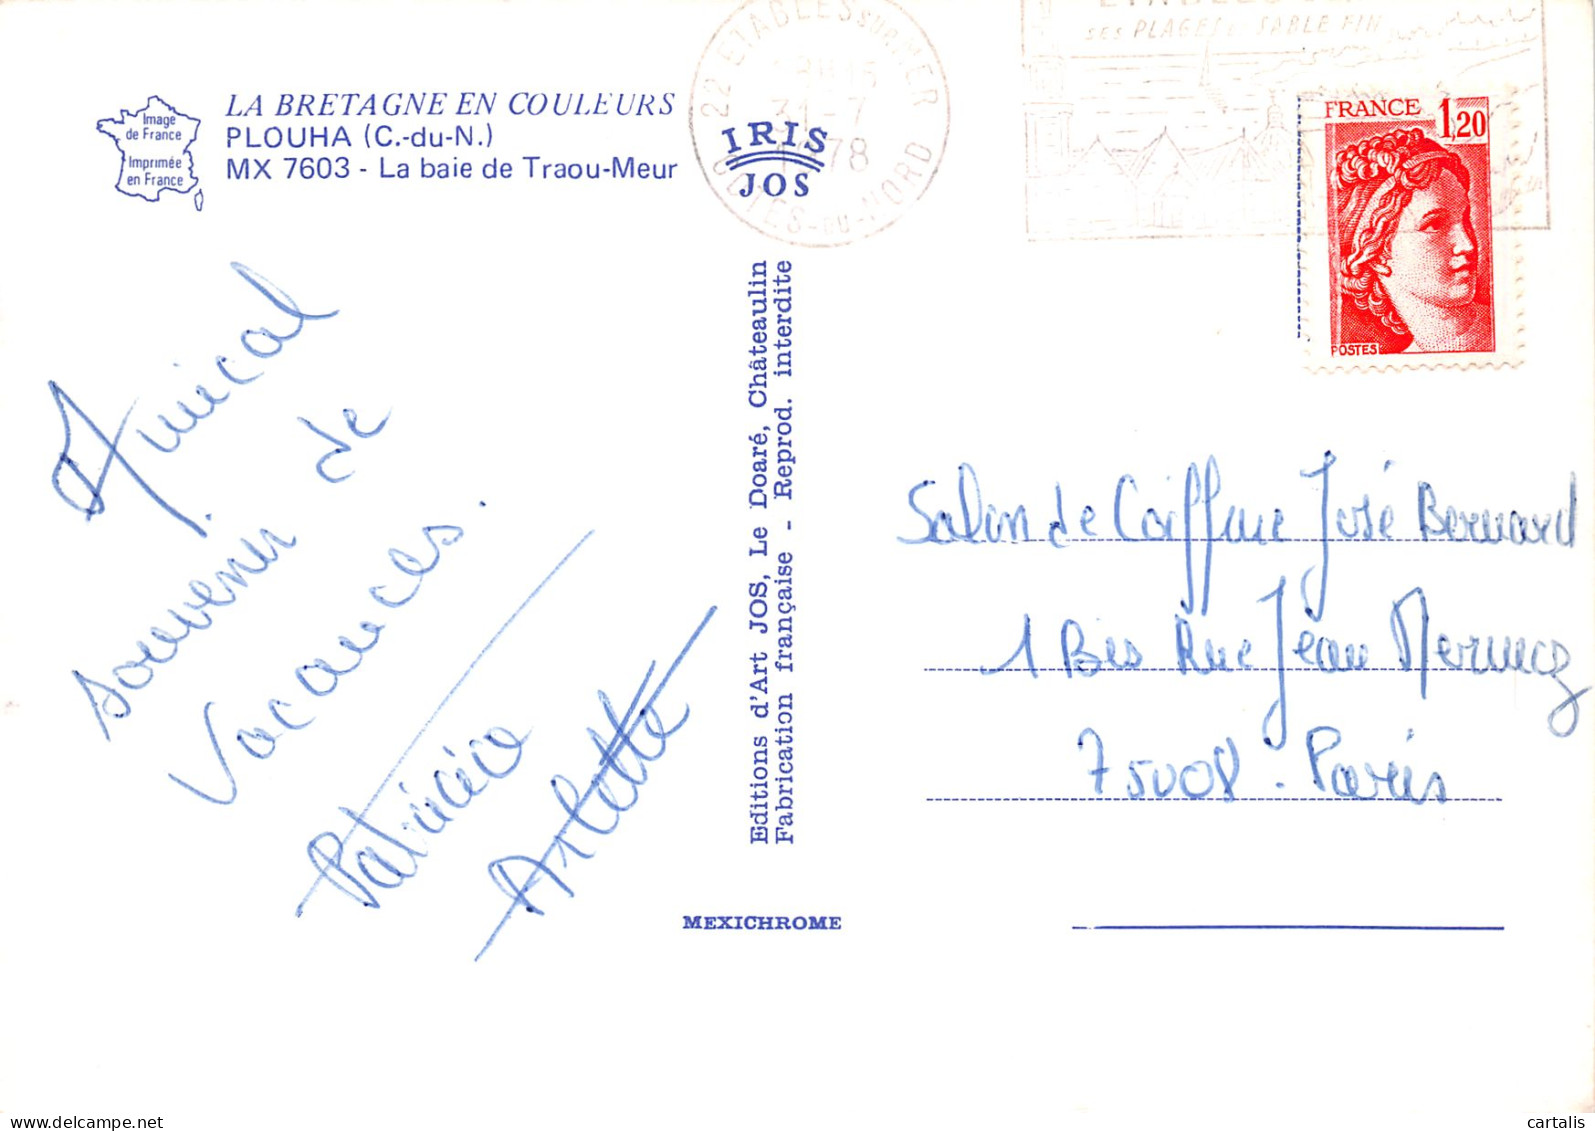 LA BRETAGNE EN COULEURS
PLOUHA (C.-du-N.)
MX 7603 - La baie de Traou-Meur
Image
de France
Imprimée
en France
22 ETABLES SUR MER
31-7
1978
COTES-DU-NORD
IRIS
JOS
SES PLAGES DE SABLE FIN
FRANCE
1,20
POSTES
Amical
souvenir de
Vacances.
Patricia
Arlette
Editions d'Art JOS, Le Doaré, Châteaulin
Fabrication française - Reprod. interdite
MEXICHROME
Salon de Coiffure José Bernard
1 Bis Rue Jean Mermoz
75008. Paris
delcampe.net
cartalis